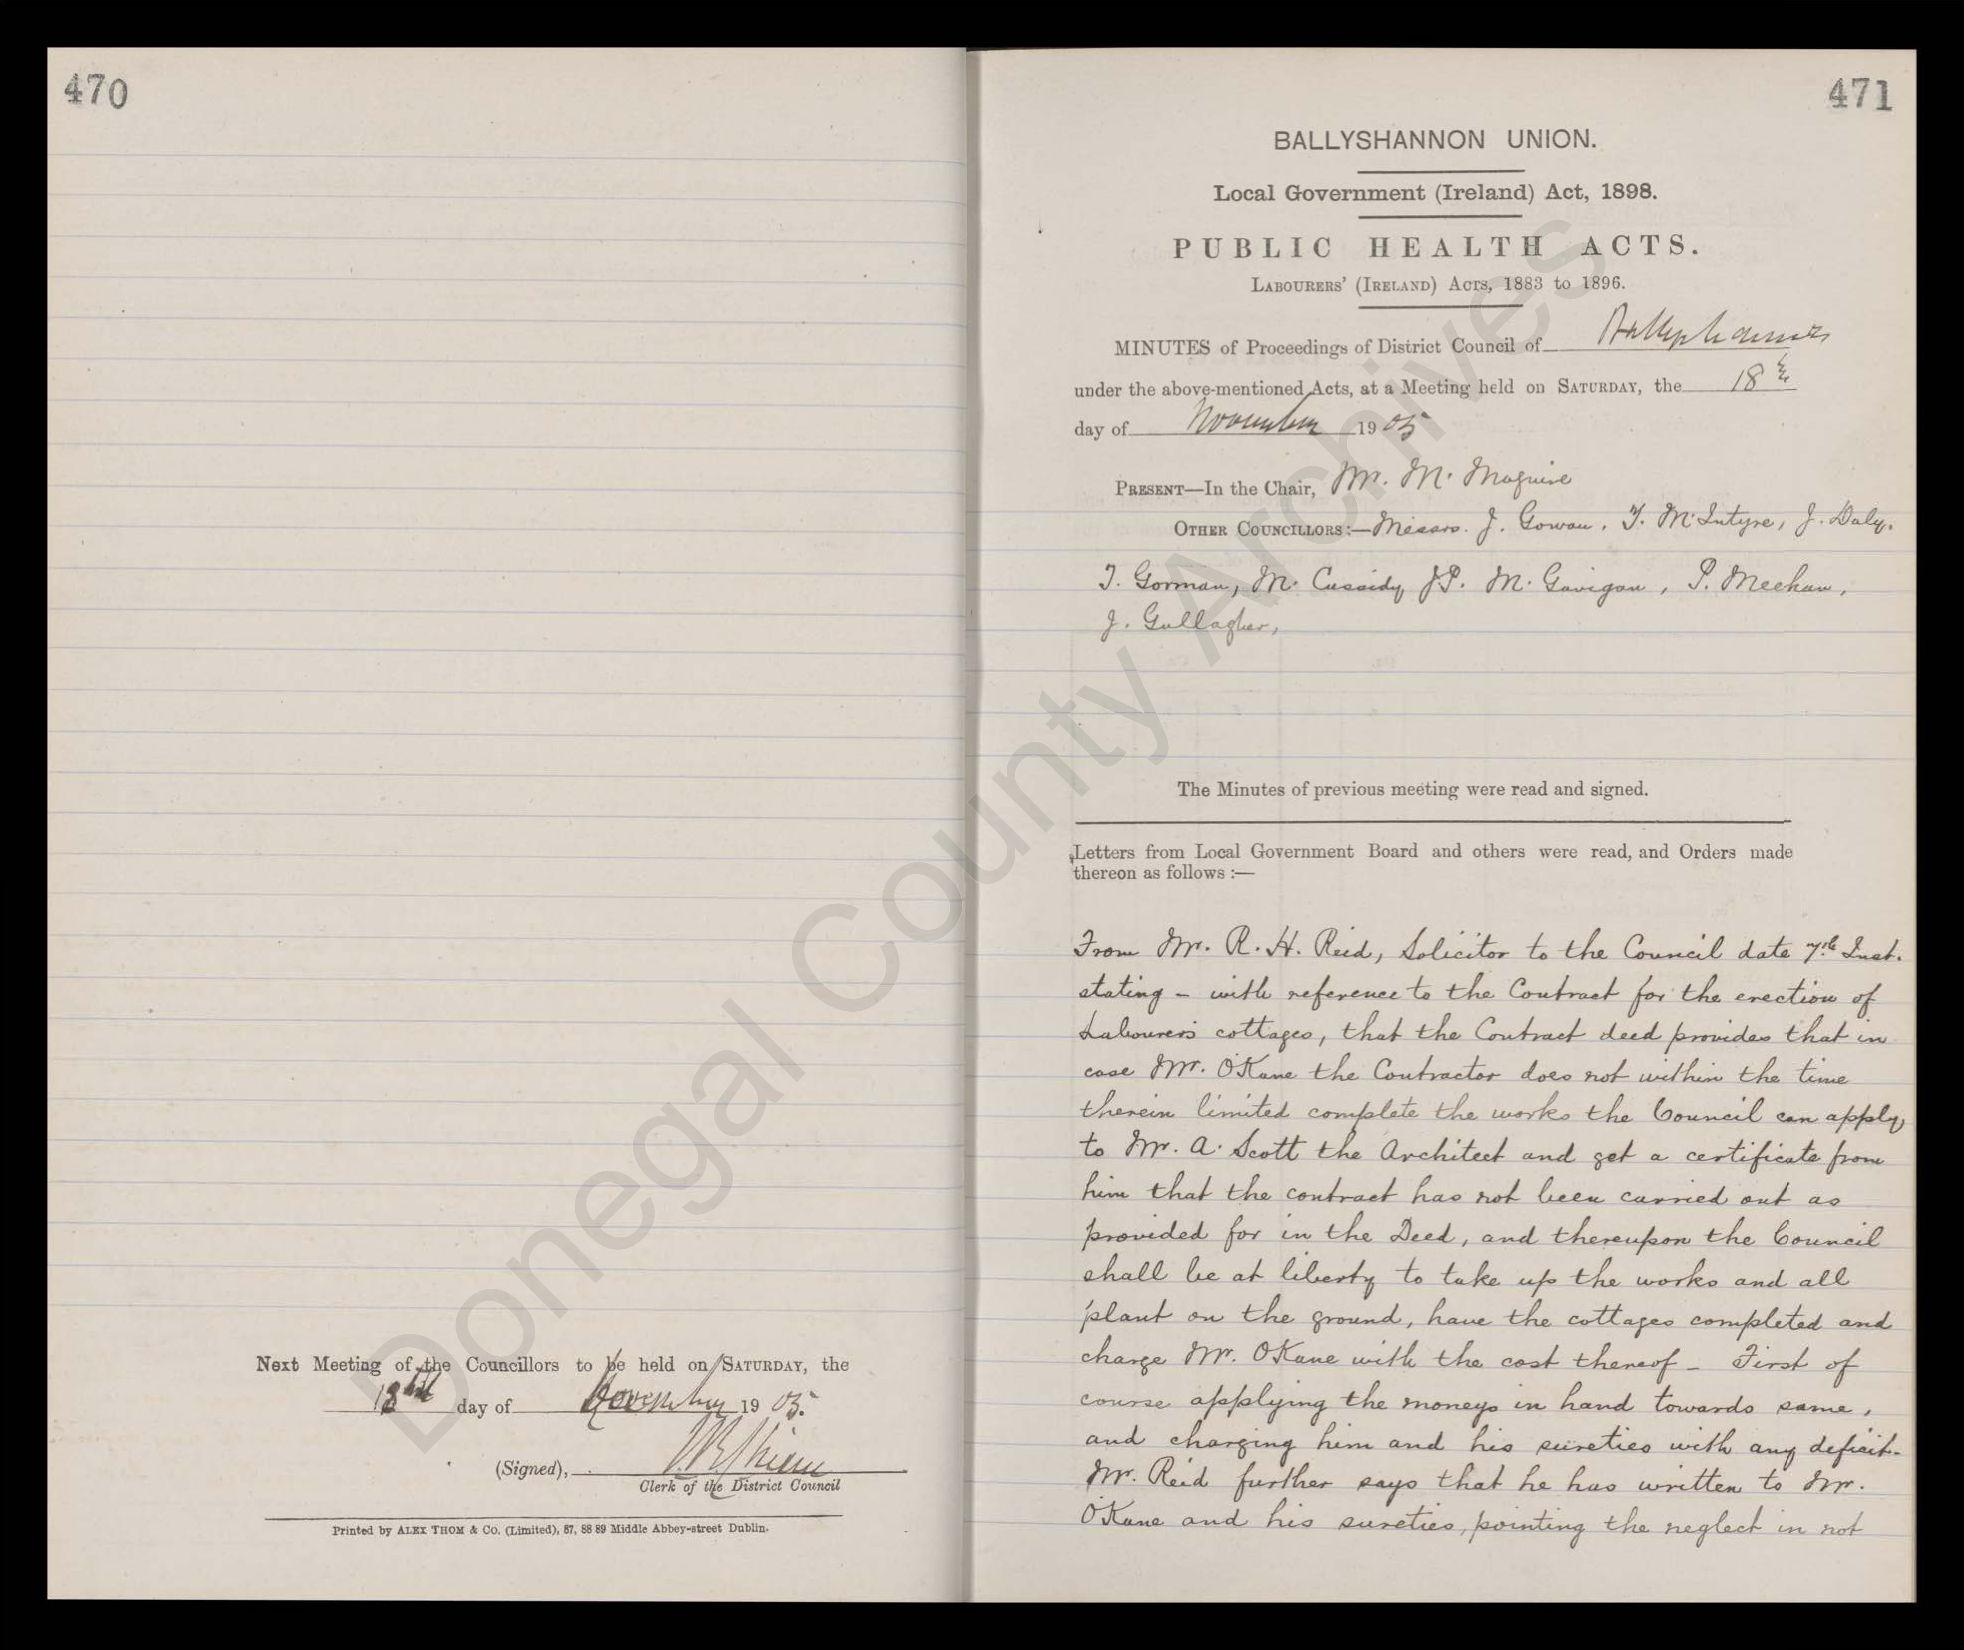 470
Next Meeting of the Councillors to be held on SATURDAY, the
18th day of November 1905.
(Signed),
Clerk of the District Council
Printed by ALEX THOM & Co. (Limited), 87, 88 89 Middle Abbey-street Dublin.
471
BALLYSHANNON UNION.
Local Government (Ireland) Act, 1898.
PUBLIC HEALTH ACTS.
LABOURERS' (IRELAND) ACTS, 1883 to 1896.
MINUTES of Proceedings of District Council of Ballyshannon
under the above-mentioned Acts, at a Meeting held on SATURDAY, the 18th
day of November 1905
PRESENT—In the Chair, Mr. M. Maguire
OTHER COUNCILLORS:—Messrs. J. Gowan, T. McIntyre, J. Daly.
T. Gorman, M. Cassidy J.P. M. Gavigan, P. Meehan,
J. Gallagher,
The Minutes of previous meeting were read and signed.
Letters from Local Government Board and others were read, and Orders made
thereon as follows :—
From Mr. R. H. Reid, Solicitor to the Council date 7th Inst.
stating - with reference to the Contract for the erection of
Labourers cottages, that the Contract deed provides that in
case Mr. O'Kane the Contractor does not within the time
therein limited complete the works the Council can apply
to Mr. A. Scott the Architect and get a certificate from
him that the contract has not been carried out as
provided for in the Deed, and thereupon the Council
shall be at liberty to take up the works and all
plant on the ground, have the cottages completed and
charge Mr. O'Kane with the cost thereof - First of
course applying the moneys in hand towards same,
and charging him and his sureties with any deficit.
Mr. Reid further says that he has written to Mr.
O'Kane and his sureties, pointing the neglect in not
Donegal County Archives